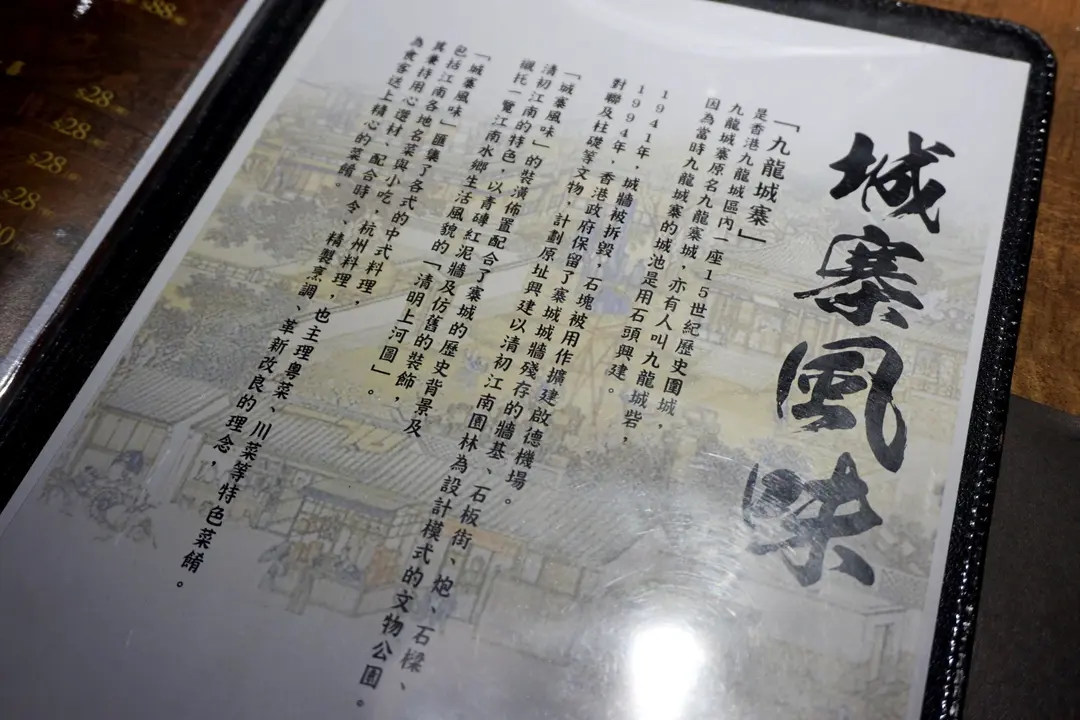 城寨風味
「九龍城寨」
是香港九龍城區內一座15世紀歷史圍城，
九龍城寨原名九龍寨城，亦有人叫九龍城砦，
因為當時九龍城寨的城池是用石頭興建。
1941年，城牆被拆毀，石塊被用作擴建啟德機場。
1994年，香港政府保留了寨城城牆殘存的牆基、石板街、炮、石樑、
對聯及柱礎等文物，計劃原址興建以清初江南園林為設計模式的文物公園。
「城寨風味」的裝潢佈置配合了寨城的歷史背景及
清初江南的特色，以青磚紅泥牆及仿舊的裝飾，
襯托一覽江南水鄉生活風貌的「清明上河圖」。
「城寨風味」匯集了各式的中式料理，
包括江南各地名菜與小吃，杭州料理，也主理粵菜、川菜等特色菜餚。
其秉持用心選材、配合時令、精製烹調、革新改良的理念，
為食客送上精心的菜餚。
$88
$28
$28
$28
$28